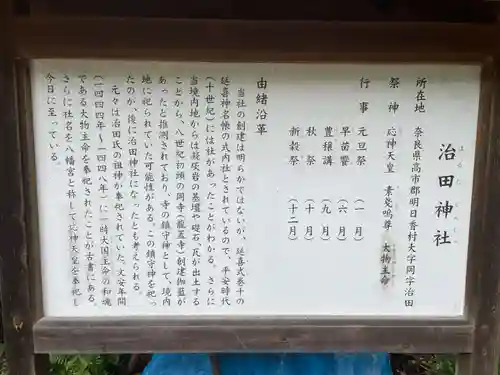 治田神社
所在地 奈良県高市郡明日香村大字岡字治田
祭神 応神天皇 素戔嗚尊 大物主命
行事 元旦祭 (一月)
早苗饗 (六月)
豊穣講 (九月)
秋祭 (十月)
新穀祭 (十二月)
由緒沿革
当社の創建は明らかではないが、延喜式巻十の
延喜神名帳の式内社とされているので、平安時代
(十世紀)には社があったことがわかる。さらに
当境内地からは凝灰岩の基壇や礎石、瓦が出土する
ことから、八世紀初頭の岡寺(龍蓋寺)創建伽藍が
あったと推測されており、寺の鎮守神として、境内
地に祀られていた可能性がある。この鎮守神を祀っ
たのが、後に治田神社になったとも考えられる。
元々は治田氏の祖神が奉祀されていた。文安年間
(一四四四年~一四四八年)に一時大国主命の和魂
である大物主命を奉祀されたことが古書にある。
さらに社名を八幡宮と称して応神天皇を奉祀し
今日に至っている。